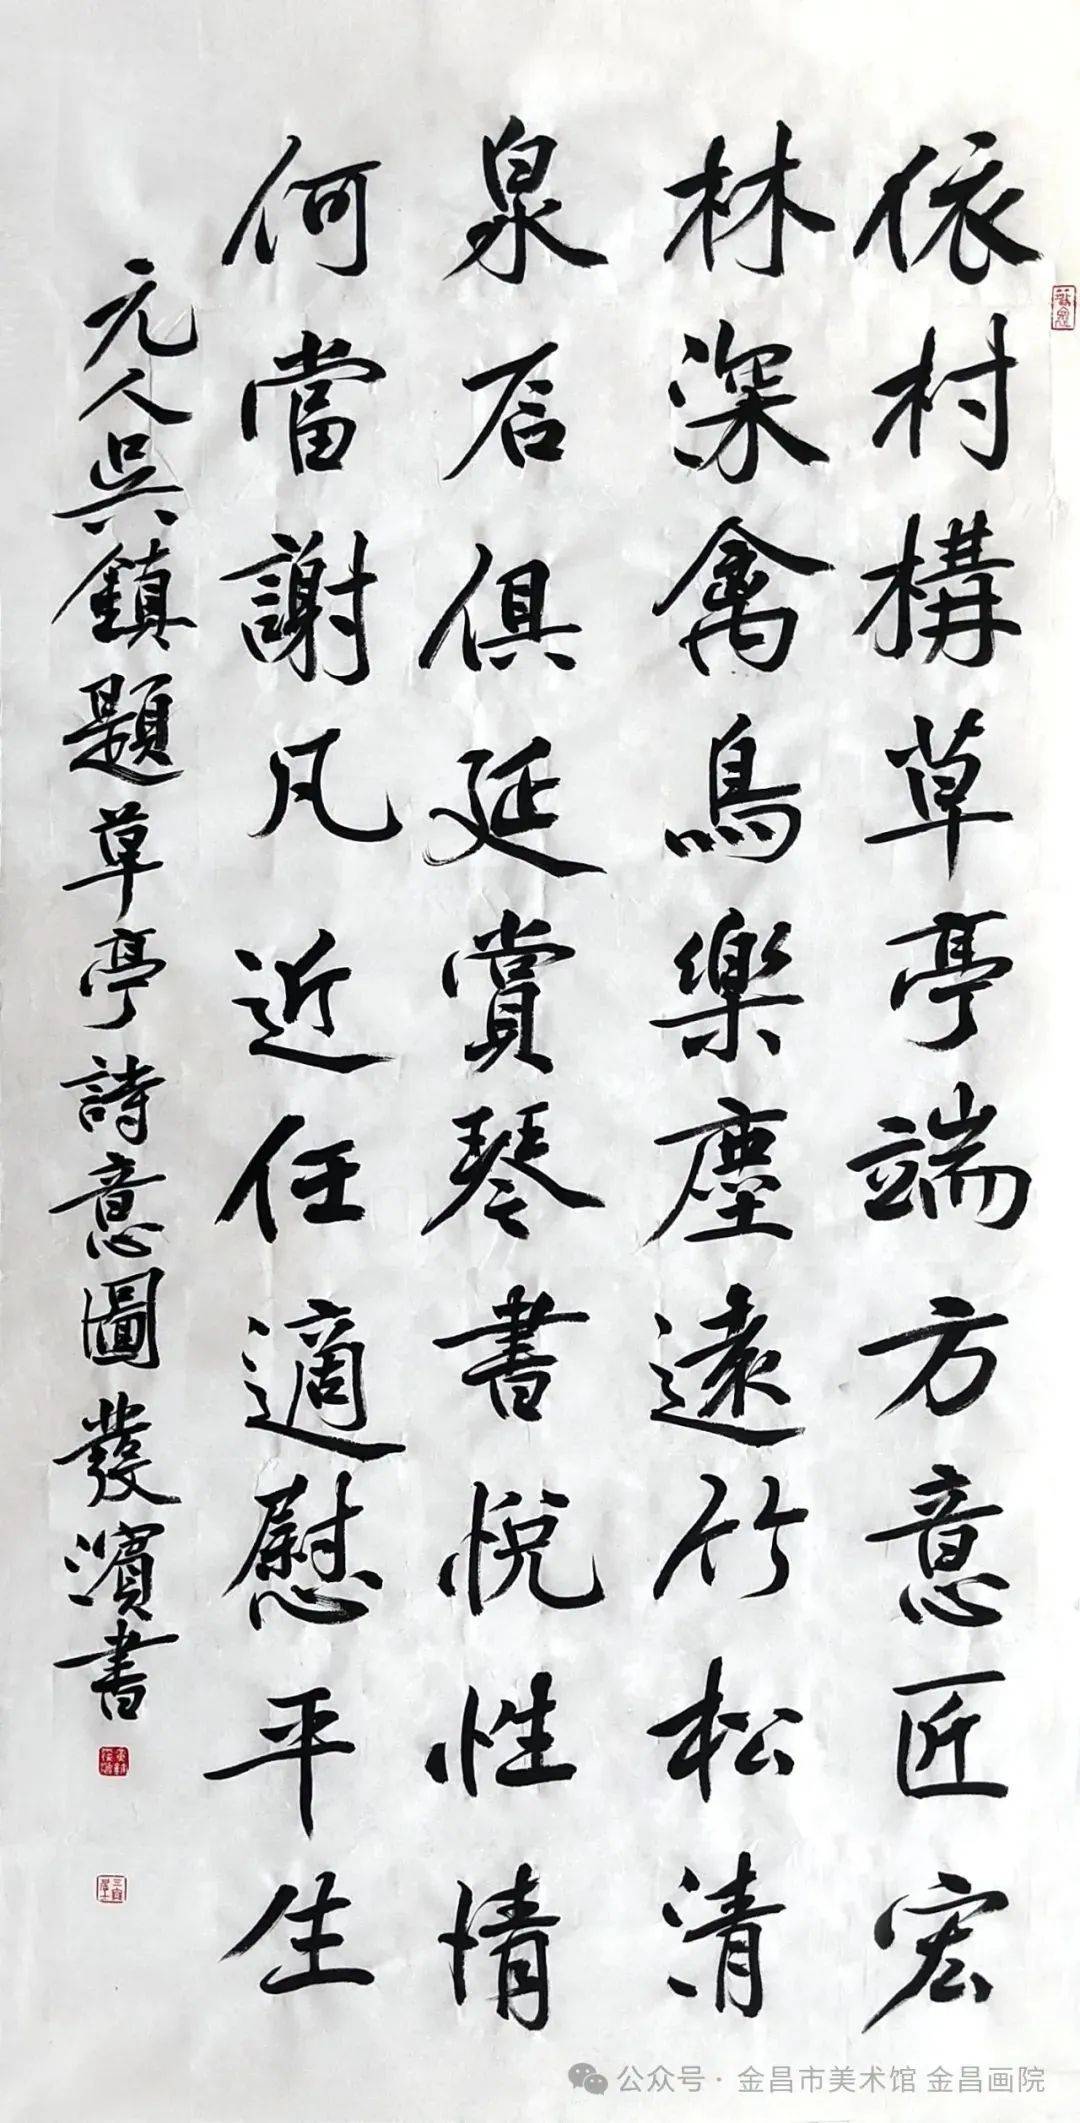 依村構草亭端方意匠宏
林深禽鳥樂塵遠竹松清
泉石俱延賞琴書悅性情
何當謝凡近任適慰平生
元人吳鎮題草亭詩意圖 發濱書
公众号·金昌市美术馆 金昌画院